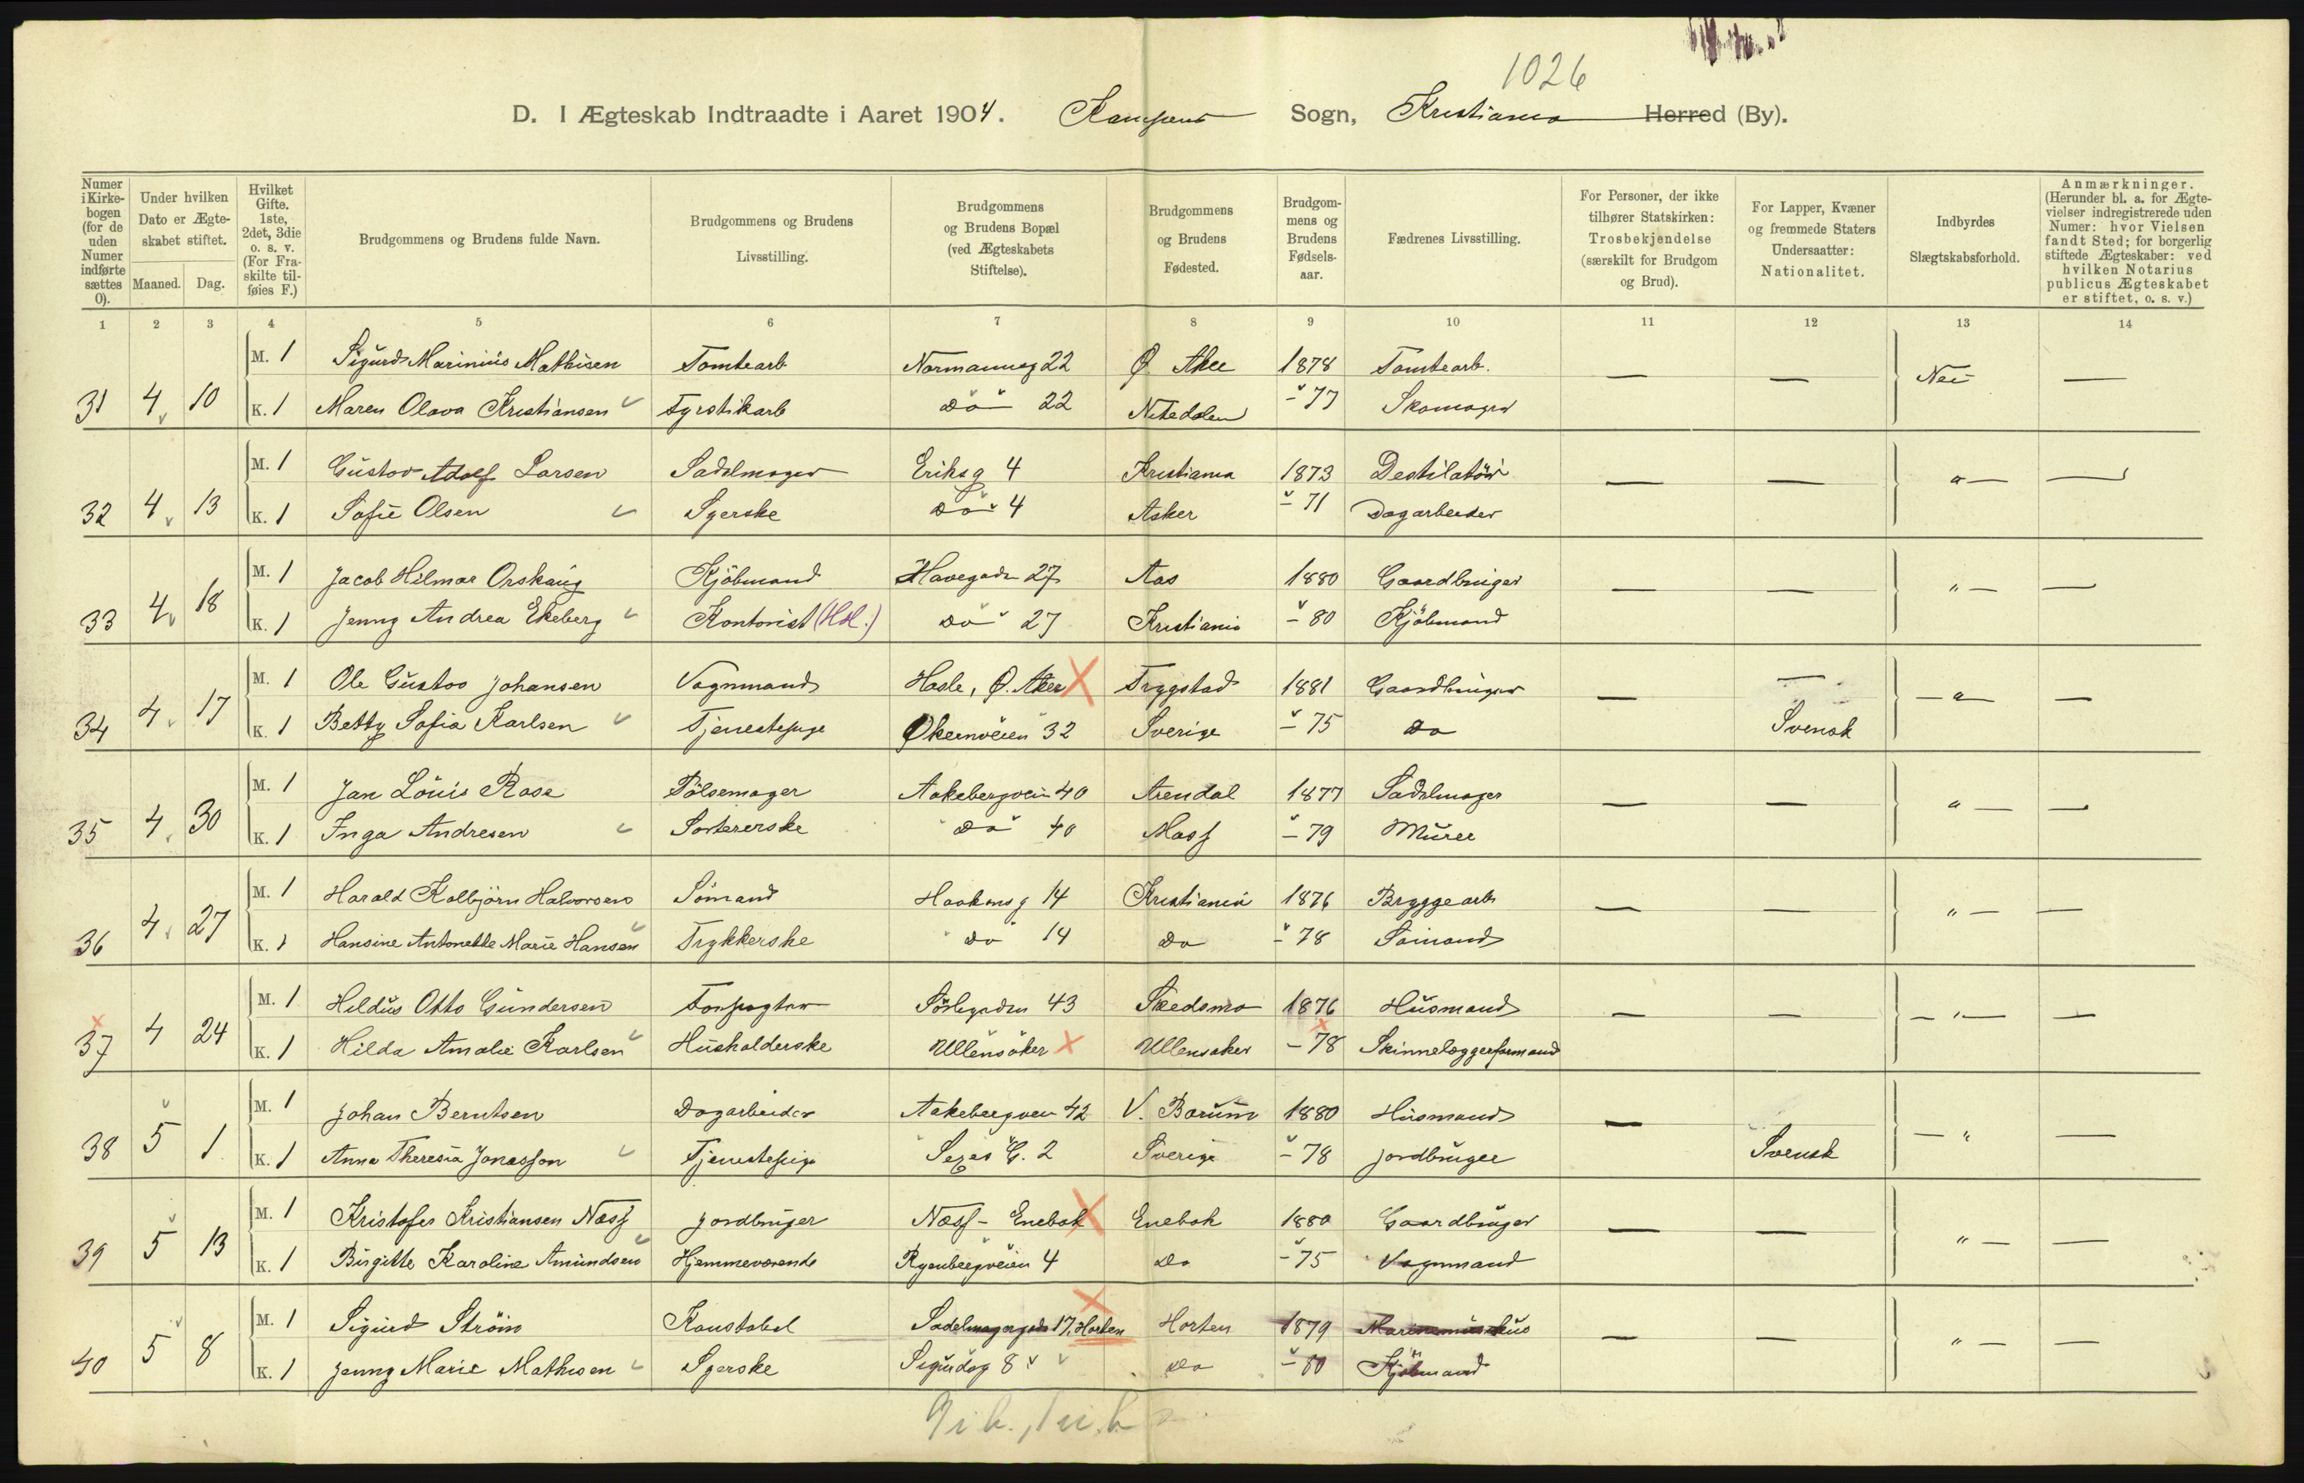 1026
D. I Ægteskab Indtraadte i Aaret 1904. Kampens Sogn, Kristiania Herred (By).
Numer i Kirkebogen (for de uden Numer indførte sættes 0). | Under hvilken Dato er Ægteskabet stiftet. Maaned. Dag. | Hvilket Gifte. 1ste, 2det, 3die o. s. v. (For Fraskilte tilføies F.) | Brudgommens og Brudens fulde Navn. | Brudgommens og Brudens Livsstilling. | Brudgommens og Brudens Bopæl (ved Ægteskabets Stiftelse). | Brudgommens og Brudens Fødested. | Brudgommens og Brudens Fødselsaar. | Fædrenes Livsstilling. | For Personer, der ikke tilhører Statskirken: Trosbekjendelse (særskilt for Brudgom og Brud). | For Lapper, Kvæner og fremmede Staters Undersaatter: Nationalitet. | Indbyrdes Slægtskabsforhold. | Anmærkninger. (Herunder bl. a. for Ægtevielser indregistrerede uden Numer: hvor Vielsen fandt Sted; for borgerlig stiftede Ægteskaber: ved hvilken Notarius publicus Ægteskabet er stiftet, o. s. v.)
1 2 3 4 5 6 7 8 9 10 11 12 13 14
M. 1 Sigurd Marinius Mathisen Tomtearb Normannsg 22 Ø. Aker 1878 Tomtearb. — — Nei —
31 4 10 K. 1 Maren Olava Kristiansen Fyrstikarb Do 22 Nitedalen – 77 Skomager
M. 1 Gustav Adolf Larsen Sadelmager Eriksg 4 Kristiania 1873 Destilatör — — " — —
32 4 13 K. 1 Sofie Olsen Syerske Do 4 Asker – 71 Dagarbeider
M. 1 Jacob Hilmar Orskaug Kjöbmand Havegadn 27 Aas 1880 Gaardbruger — — " — —
33 4 18 K. 1 Jenny Andrea Ekeberg Kontorist (Hdl.) Do 27 Kristiania – 80 Kjöbmand
M. 1 Ole Gustav Johansen Vognmand Hasle, Ø. Aker Trygstad 1881 Gaardbruger — — — " — —
34 4 17 K. 1 Betty Sofia Karlsen Tjenestepige Økernveien 32 Sverige – 75 Do Svensk
M. 1 Jan Louis Rose Pölsemager Aakebergvein 40 Arendal 1877 Sadelmager — — " — —
35 4 30 K. 1 Inga Andresen Sortererske Do 40 Moss – 79 Murer
M. 1 Harald Kolbjörn Halvorsen Sömand Haakonsg 14 Kristiania 1876 Bryggearb — — " — —
36 4 27 K. 1 Hansine Antonette Marie Hansen Trykkerske Do 14 Do – 78 Sömand
M. 1 Hildus Otto Gundersen Forpagter Sörligaden 43 Skedsmo 1876 Husmand — — — " — —
37 4 24 K. 1 Hilda Amalie Karlsen Husholderske Ullensaker Ullensaker – 78 Skinnelæggerformand
M. 1 Johan Berntsen Dagarbeider Aakebergvein 42 V. Bærum 1880 Husmand — — " —
38 5 1 K. 1 Anna Theresia Jonasson Tjenestepige Sexes G. 2 Sverige – 78 Jordbruger Svensk
M. 1 Kristofer Kristiansen Næss Jordbruger Næss – Enebak Enebak 1880 Gaardbruger — — " — —
39 5 13 K. 1 Birgitte Karoline Amundsen Hjemmeværende Ryenbergveien 4 Do – 75 Vognmand
M. 1 Sigurd Ström Konstabel Sadelmagergadn 17, Horten Horten 1879 Marinemusikus — — " — —
40 5 8 K. 1 Jenny Marie Mathisen Syerske Sigurdsg 8 Do – 80 Kjöbmand
9 i b., 1 u. b.